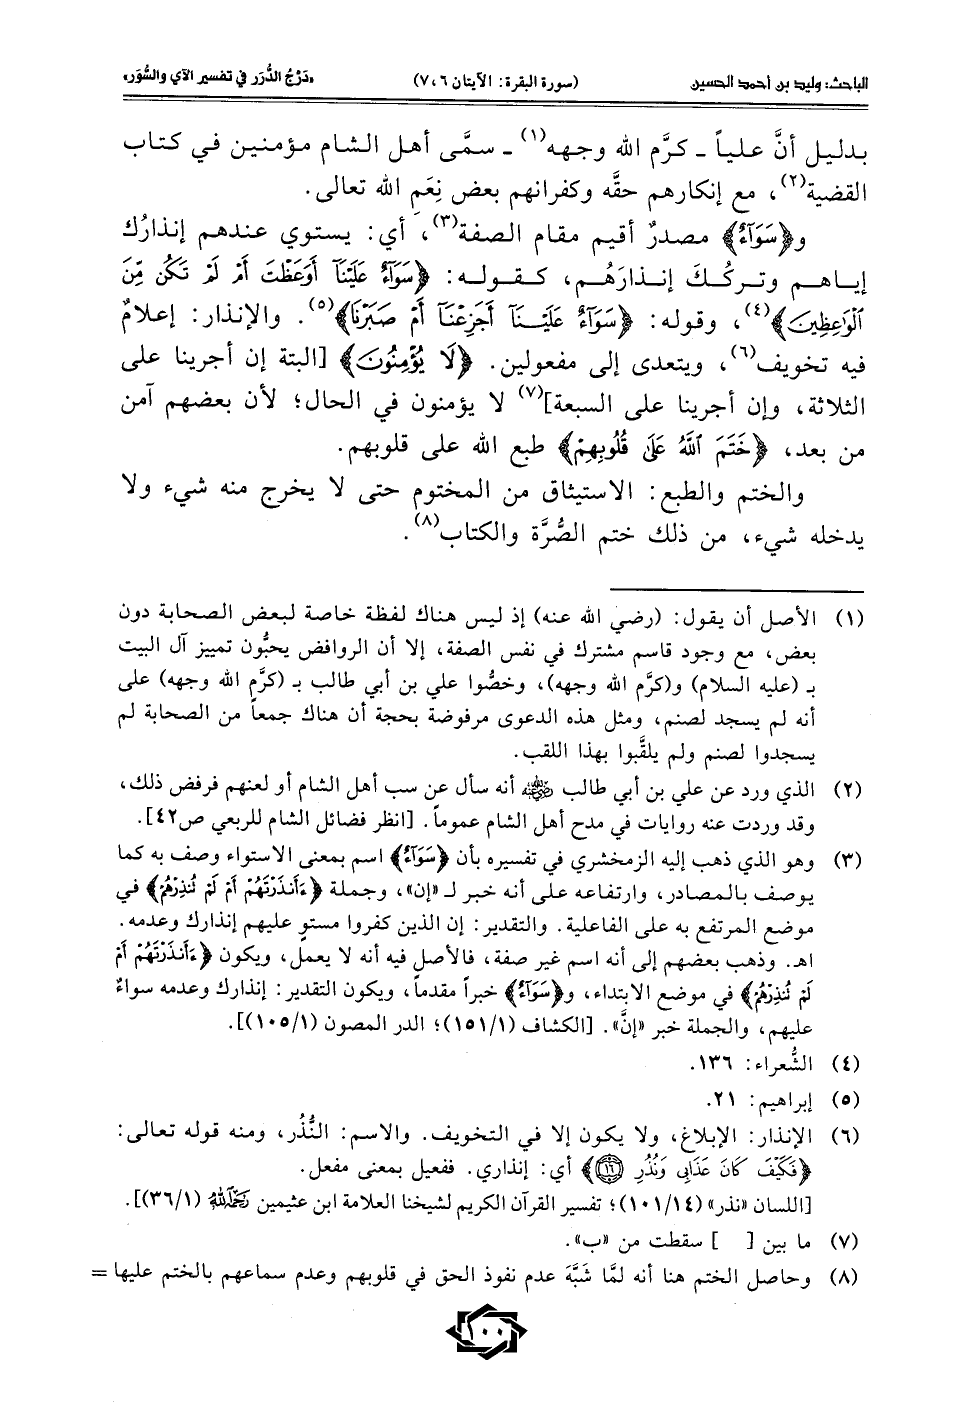 الباحث: وليد بن أحمد الحسين (سورة البقرة: الآيتان ٦، ٧) «دَرْجُ الدُّرَر في تفسير الآي والسُّوَر»
بدليل أنَّ علياً ـ كرَّم الله وجهه(١) ـ سمَّى أهل الشام مؤمنين في كتاب
القضية(٢)، مع إنكارهم حقَّه وكفرانهم بعض نِعَم الله تعالى.
و﴿سَوَآءٌ﴾ مصدرٌ أقيم مقام الصفة(٣)، أي: يستوي عندهم إنذارُك
إياهم وتركُكَ إنذارَهُم، كقوله: ﴿سَوَآءٌ عَلَيْنَآ أَوَعَظْتَ أَمْ لَمْ تَكُن مِّنَ
ٱلْوَٰعِظِينَ﴾(٤)، وقوله: ﴿سَوَآءٌ عَلَيْنَآ أَجَزِعْنَآ أَمْ صَبَرْنَا﴾(٥). والإنذار: إعلام
فيه تخويف(٦)، ويتعدى إلى مفعولين. ﴿لَا يُؤْمِنُونَ﴾ [البتة إن أجرينا على
الثلاثة، وإن أجرينا على السبعة](٧) لا يؤمنون في الحال؛ لأن بعضهم آمن
من بعد، ﴿خَتَمَ ٱللَّهُ عَلَىٰ قُلُوبِهِمْ﴾ طبع الله على قلوبهم.
والختم والطبع: الاستيثاق من المختوم حتى لا يخرج منه شيء ولا
يدخله شيء، من ذلك ختم الصُّرَّة والكتاب(٨).
(١) الأصل أن يقول: (رضي الله عنه) إذ ليس هناك لفظة خاصة لبعض الصحابة دون
بعض، مع وجود قاسم مشترك في نفس الصفة، إلا أن الروافض يحبُّون تمييز آل البيت
بـ (عليه السلام) و(كرَّم الله وجهه)، وخصُّوا علي بن أبي طالب بـ (كرَّم الله وجهه) على
أنه لم يسجد لصنم، ومثل هذه الدعوى مرفوضة بحجة أن هناك جمعاً من الصحابة لم
يسجدوا لصنم ولم يلقَّبوا بهذا اللقب.
(٢) الذي ورد عن علي بن أبي طالب رضي الله عنه أنه سأل عن سب أهل الشام أو لعنهم فرفض ذلك،
وقد وردت عنه روايات في مدح أهل الشام عموماً. [انظر فضائل الشام للربعي ص٤٢].
(٣) وهو الذي ذهب إليه الزمخشري في تفسيره بأن ﴿سَوَآءٌ﴾ اسم بمعنى الاستواء وصف به كما
يوصف بالمصادر، وارتفاعه على أنه خبر لـ «إن»، وجملة ﴿ءَأَنذَرْتَهُمْ أَمْ لَمْ تُنذِرْهُمْ﴾ في
موضع المرتفع به على الفاعلية. والتقدير: إن الذين كفروا مستوٍ عليهم إنذارك وعدمه.
اهـ. وذهب بعضهم إلى أنه اسم غير صفة، فالأصل فيه أنه لا يعمل، ويكون ﴿ءَأَنذَرْتَهُمْ أَمْ
لَمْ تُنذِرْهُمْ﴾ في موضع الابتداء، و﴿سَوَآءٌ﴾ خبراً مقدماً، ويكون التقدير: إنذارك وعدمه سواءٌ
عليهم، والجملة خبر «إنَّ». [الكشاف (١/١٥١)؛ الدر المصون (١/١٠٥)].
(٤) الشُّعراء: ١٣٦.
(٥) إبراهيم: ٢١.
(٦) الإنذار: الإبلاغ، ولا يكون إلا في التخويف. والاسم: النُّذُر، ومنه قوله تعالى:
﴿فَكَيْفَ كَانَ عَذَابِى وَنُذُرِ ۝١٦﴾ أي: إنذاري. ففعيل بمعنى مفعل.
[اللسان «نذر» (١٤/١٠١)؛ تفسير القرآن الكريم لشيخنا العلامة ابن عثيمين رحمه الله (١/٣٦)].
(٧) ما بين [ ] سقطت من «ب».
(٨) وحاصل الختم هنا أنه لمَّا شَبَّهَ عدم نفوذ الحق في قلوبهم وعدم سماعهم بالختم عليها =
١٠٠